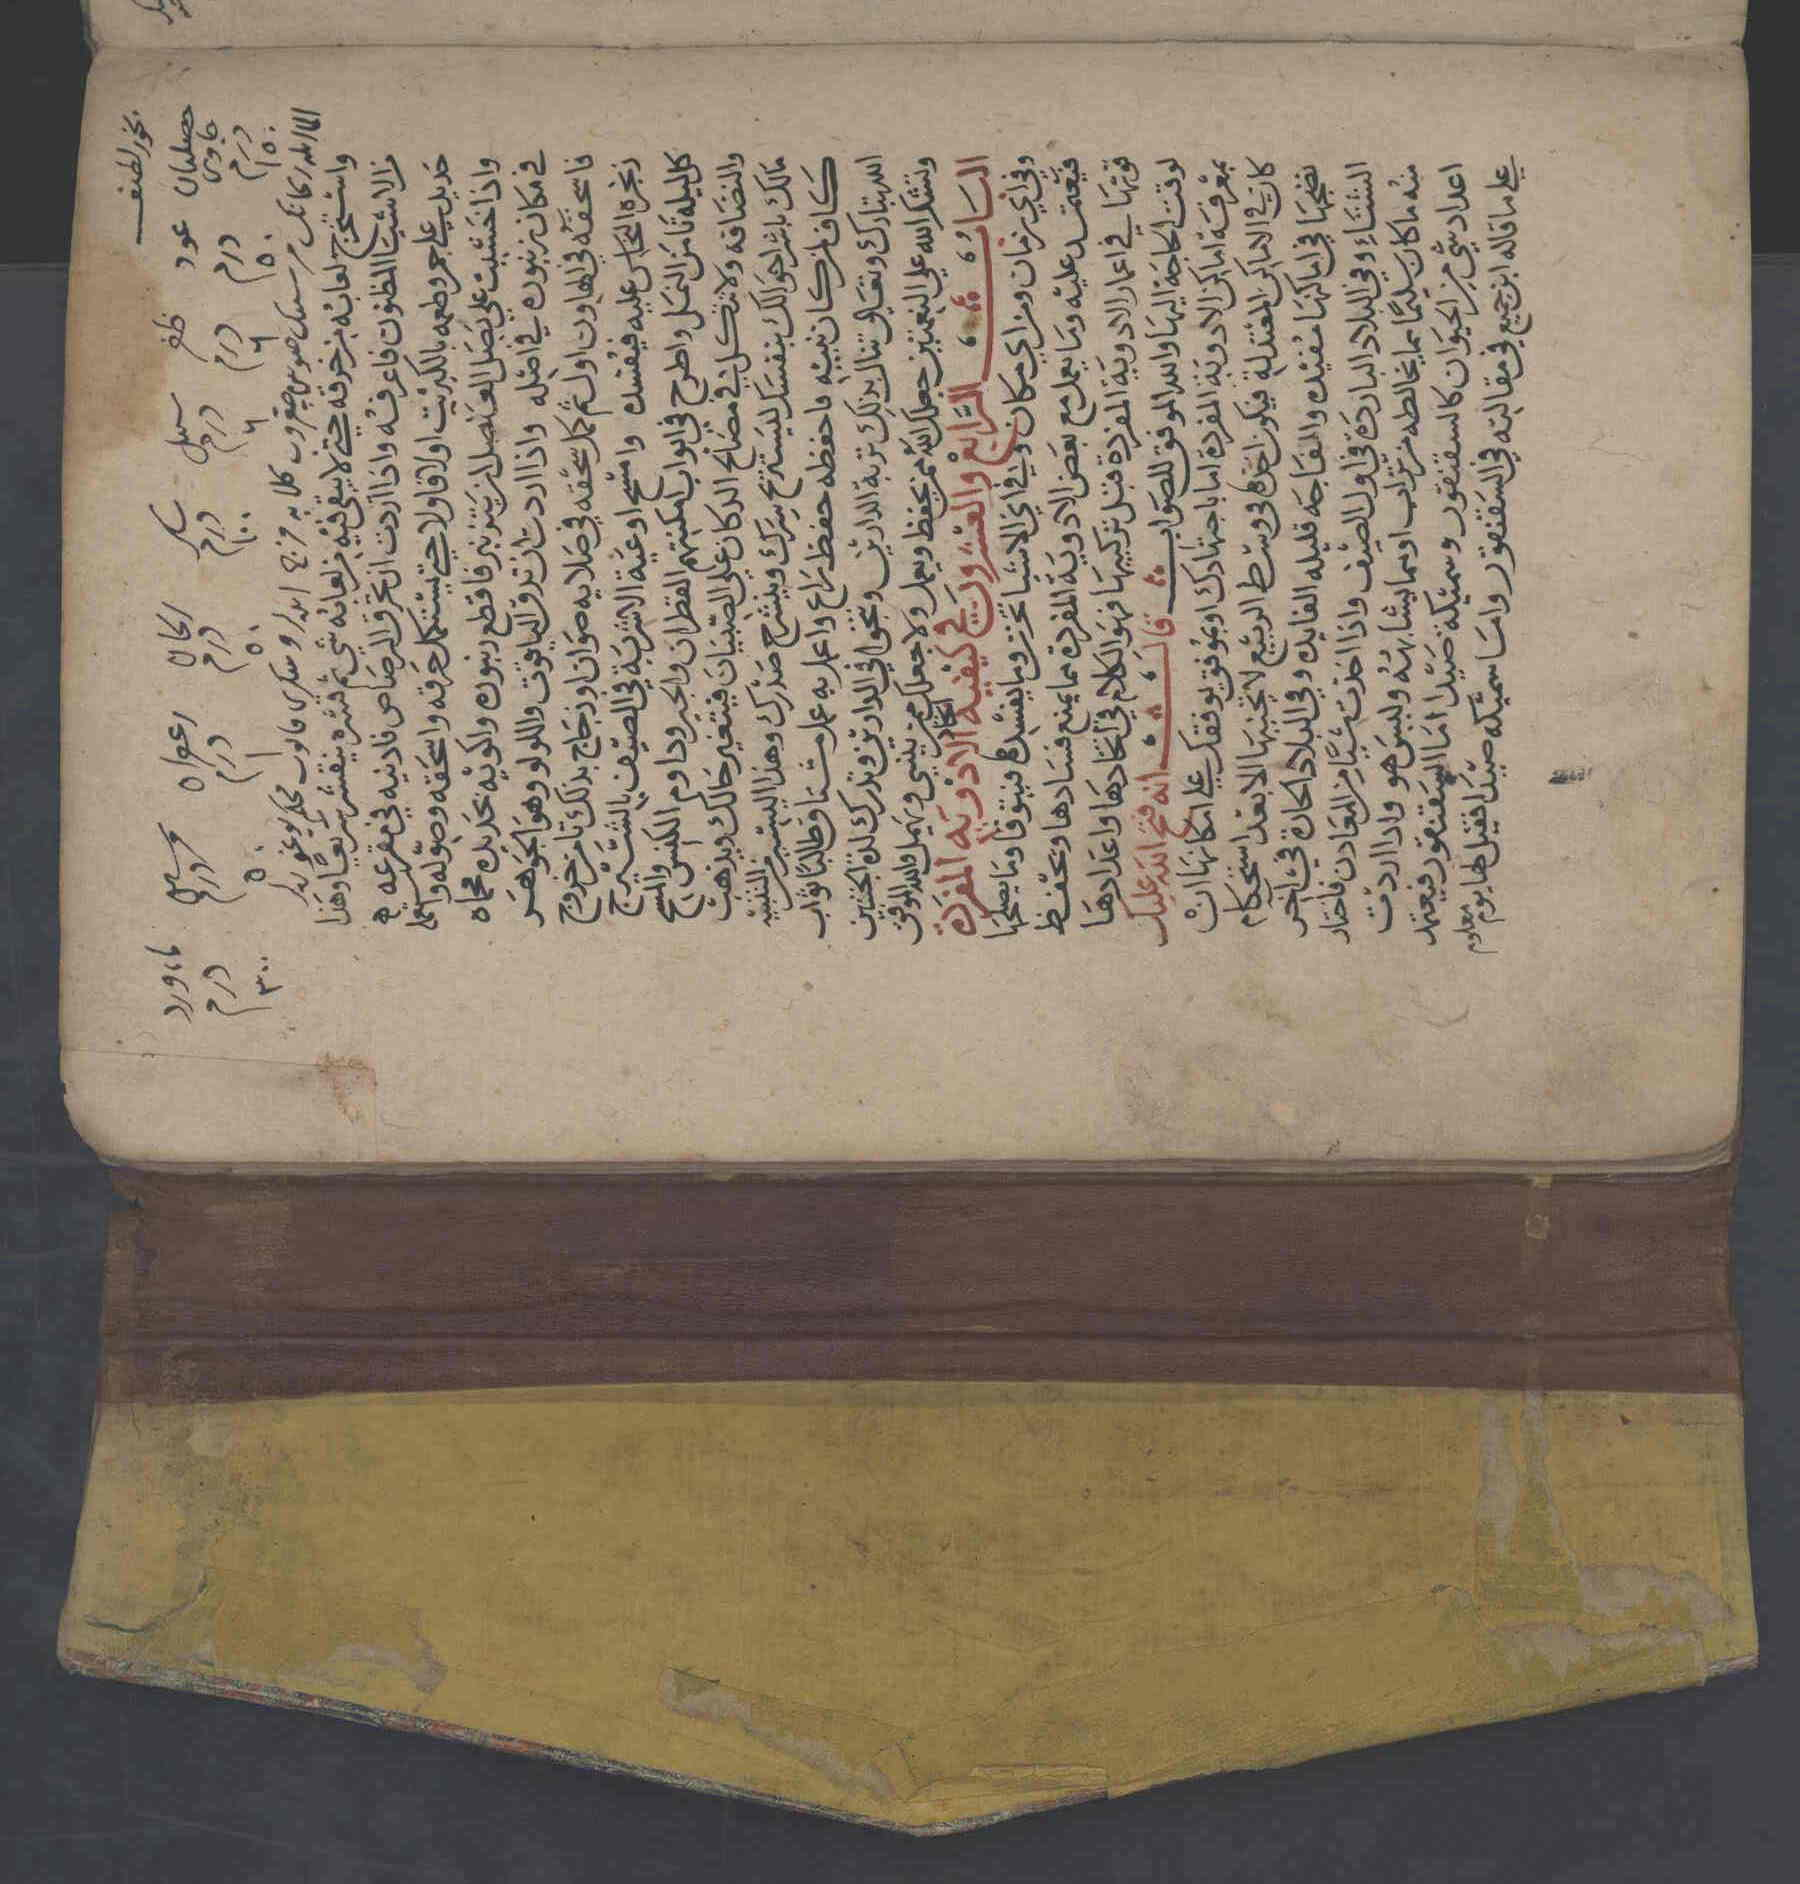 بخور لطيف
حصلبان جاوى درم ١٥٠ عود درم ٥٠ ظفر درم ٦ سنبل درم ٦ سكر درم ١٠٠ درم ٥٠ زعفران درم ١ درم ٥٠ ماء ورد درم ٣٠٠
واستخرج لعابه من خرقة حتى لا يبقى فيه من لعابه شي ثم قشره ينقشر سريعا وهذا
من الاشيا المظنون فاعرفه واذا اردت ان تحرق الرصاص فاذبه في مقرعة
حديد على جمر وطعمه بالكبريت اولا فاولا حتى يستكمل حرقه واسحقه وصوله واستعمله
واذا خشيت على بصل العنصل ان يتزنبر فاقطع زنبوره واكويه بحديده محماه
في مكان زنبوره في اصله واذا اردت ان تدق الياقوت واللولو وهو الجوهر
فاسحقه في الهاون اولا ثم كمل سحقه في صلايه صوان او زجاج بذلك تامن خروج
زنجرة النحاس عليه فيفسد وامسح اوعية الاشربة في الصيف بالشيرج
كل ليلة تامن النمل واطرح في ابواب امكنتهم القطران والجير وداوم الكنس والمسح
والنضافه ولا تتكل في مصالح الدكان على الصبيان فيتغير حالك ويذهب
مالك باشر احوالك بنفسك ليستريح سرك وينشرح صدرك وهذا اليسير من التنبيه
كاف لمن كان نبيه فاحفظه حفظ راع واعمل به عمل مشتاق طالبا ثواب
الله تبارك وتعالى تنال بذلك تربة الدارين وتنجو في الدارين وتدرك لذة الجنتين
وتشكر الله على النعمتين جعلك الله ممن يحفظ ويعمل ولا جعلك ممن ينسى ويهمل والله الموفق
الباب الرابع والعشرون في كيفية اتخاذ الادوية المفردة
وفي اي زمان ومن اي مكان وفي اي الاشيا تخزن وما يفسدها فيتوقا وما يصلحها
فيعتمد عليه وما يعمل مع بعض الادوية المفردة مما يمنع فسادها ويحفظ
قوتها في اعمار الادوية المفردة قبل تركيبها فهو الكلام في اتخاذها واعدادها
لوقت الحاجة اليها والله الموفق للصواب قال انه فتح الله عليك
بمعرفة اماكن الادوية المفردة اما باجتهادك او بموفق يوفقك على امكانها ان
كان في الاماكن المعتدلة فيكون اخذها في وسط الربيع لا تجنيها الا بعد استحكام
نضجها في اماكنها مفيدة والفاجه قليله الفايدة وفي البلاد الحارة في اخر
الشتاء وفي البلاد الباردة في اول الصيف واذا اخذت شيا من المعادن فاختار
منه ما كان سليما مما يخالطه من تراب او مما يشابهه وليس هو واذا اردت
اعداد شي من الحيوان كالسقنقور وسميكة صيدا اما السقنقور فيعتمد
على ما قاله ابن جميع في مقالته في السقنقور واما سميكه صيدا فقيل لها يوم معلوم